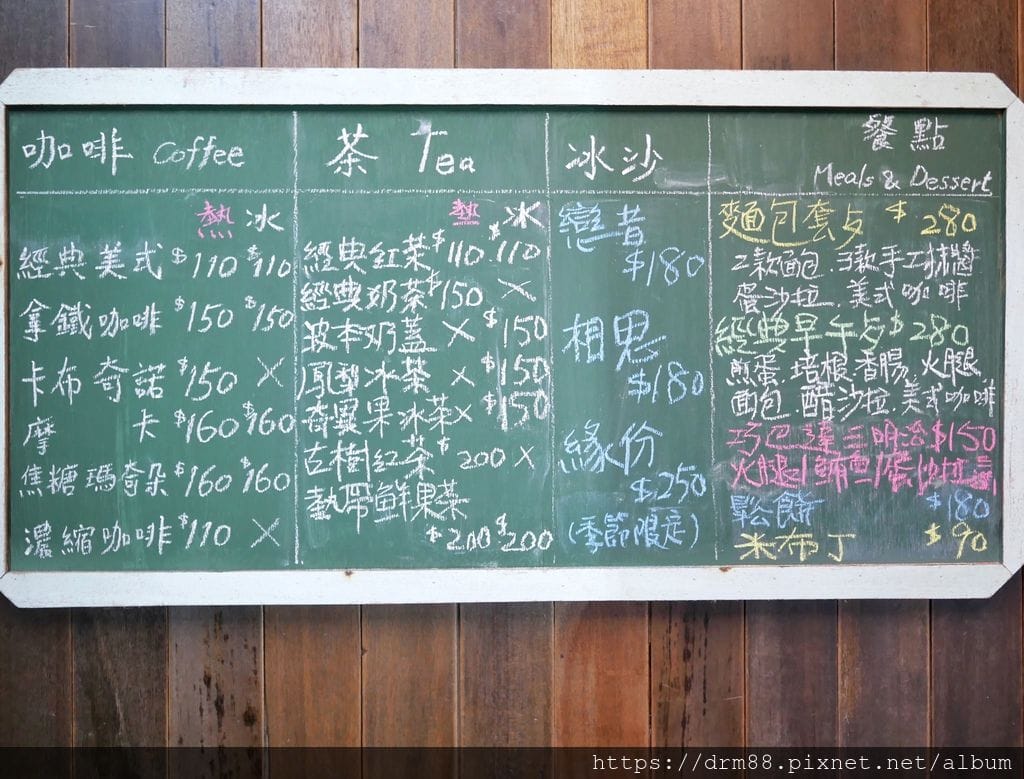 咖啡 Coffee
熱 冰
經典美式 $110 $110
拿鐵咖啡 $150 $150
卡布奇諾 $150 ×
摩卡 $160 $160
焦糖瑪奇朵 $160 $160
濃縮咖啡 $110 ×
茶 Tea
熱 冰
經典紅茶 $110 $110
經典奶茶 $150 ×
波本奶蓋 × $150
鳳梨冰茶 × $150
奇異果冰茶 × $150
古樹紅茶 $200 ×
熱帶鮮果茶
$200 $200
冰沙
戀昔
$180
相思
$180
緣份
$250
(季節限定)
餐點
Meals & Dessert
麵包套歺 $280
2款面包.3款手工抹醬
蛋沙拉.美式咖啡
經典早午歺 $280
煎蛋.培根.香腸.火腿
面包.醋沙拉.美式咖啡
巧巴達三明治 $150
火腿/鮪魚/蛋沙拉
鬆餅 $180
米布丁 $90
https://drm88.pixnet.net/album